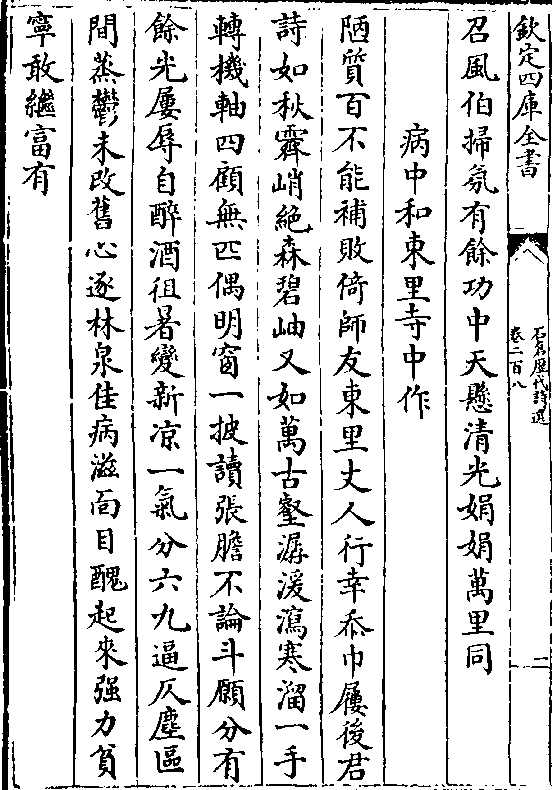 欽定四庫全書
石倉歷代詩選
卷二百八
二
召風伯掃氛有餘功中天懸清光娟娟萬里同
病中和東里寺中作
陋質百不能補敗倚師友東里丈人行幸忝巾屨後君
詩如秋霽峭絶森碧岫又如萬古壑潺湲瀉寒溜一手
轉機軸四顧無匹偶明窗一披讀張膽不論斗願分有
餘光屢辱自醉酒徂暑變新凉一氣分六九逼仄塵區
間蒸鬱未改舊心逐林泉佳病滋面目醜起來强力貧
寜敢繼富有